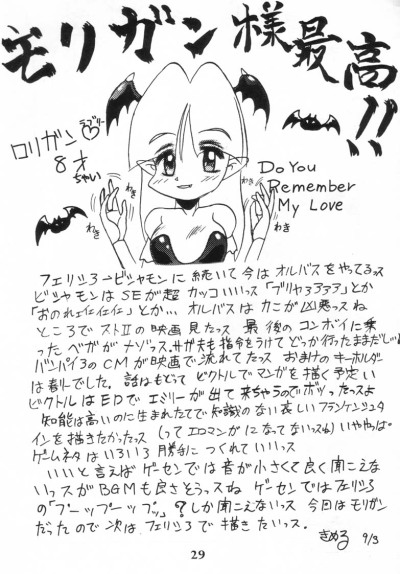 モリガン様最高!!
ラブリー
ロリガン
8才
ちゃい
わき
わき
わき
わき
Do You
Remember
My Love
フェリシア→ビシャモンに続いて今はオルバスをやってるっス
ビシャモンはSEが超カッコいいっス「ブリャァァァァ」とか
「おのれェィェィェィ」とか…オルバスは力こが凶悪っスね
ところでストIIの映画見たっス 最後のコンボイに乗
ったベガがナゾっス。サガ夫も指令をうけてどっか行ったままだし。
バンパイアのCMが映画で流れてたっス おまけのキーホルダー
は春リーでした。話はもどって ビクトルでマンガを描く予定い
ビクトルはEDでエミリーが出て来ちゃうのでボツったっスよ
知能は高いのに生まれたてで知識のない哀しいフランケンシュタ
インを描きたかったっス(ってエロマンガになってないっスね)いやっぱ。
ゲームネタはいろいろ勝手につくれていいっス
いいと言えばゲーセンでは音が小さくて良く聞こえな
いっスがBGMも良さそうっスね ゲーセンではフェリシア
の「プーップーップッ」?しか聞こえないっス 今日はモリガン
だったので次はフェリシアで描きたいっス。
きめる 9/3
29